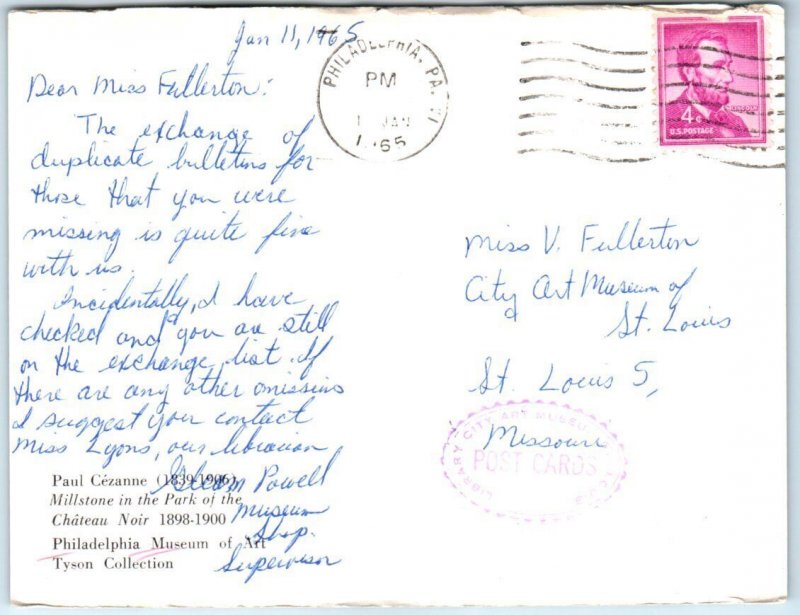 Jan 11, 1965
Dear Miss Fullerton:
The exchange of
duplicate bulletins for
those that you were
missing is quite fine
with us.
Incidentally, I have
checked and you are still
on the exchange list. If
there are any other omissions
I suggest your contact
Miss Lyons, our librarian
Powell
Museum
Shop.
Supervisor
Paul Cézanne (1839-1906)
Millstone in the Park of the
Château Noir 1898-1900
Philadelphia Museum of Art
Tyson Collection
PHILADELPHIA, PA.
PM
JAN
1965
4¢
LINCOLN
U.S. POSTAGE
Miss V. Fullerton
City Art Museum of
St. Louis
St. Louis 5,
Missouri
LIBRARY CITY ART MUSEUM
POST CARDS